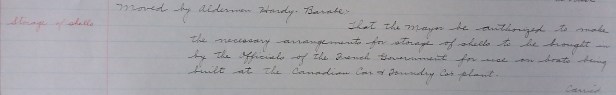 Moved by Alderman Hardy - Barabe -
Storage of shells
That the Mayor be authorized to make
the necessary arrangements for storage of shells to be brought in
by the Officials of the French Government for use on boats being
built at the Canadian Car & Foundry Co's plant.
Carried